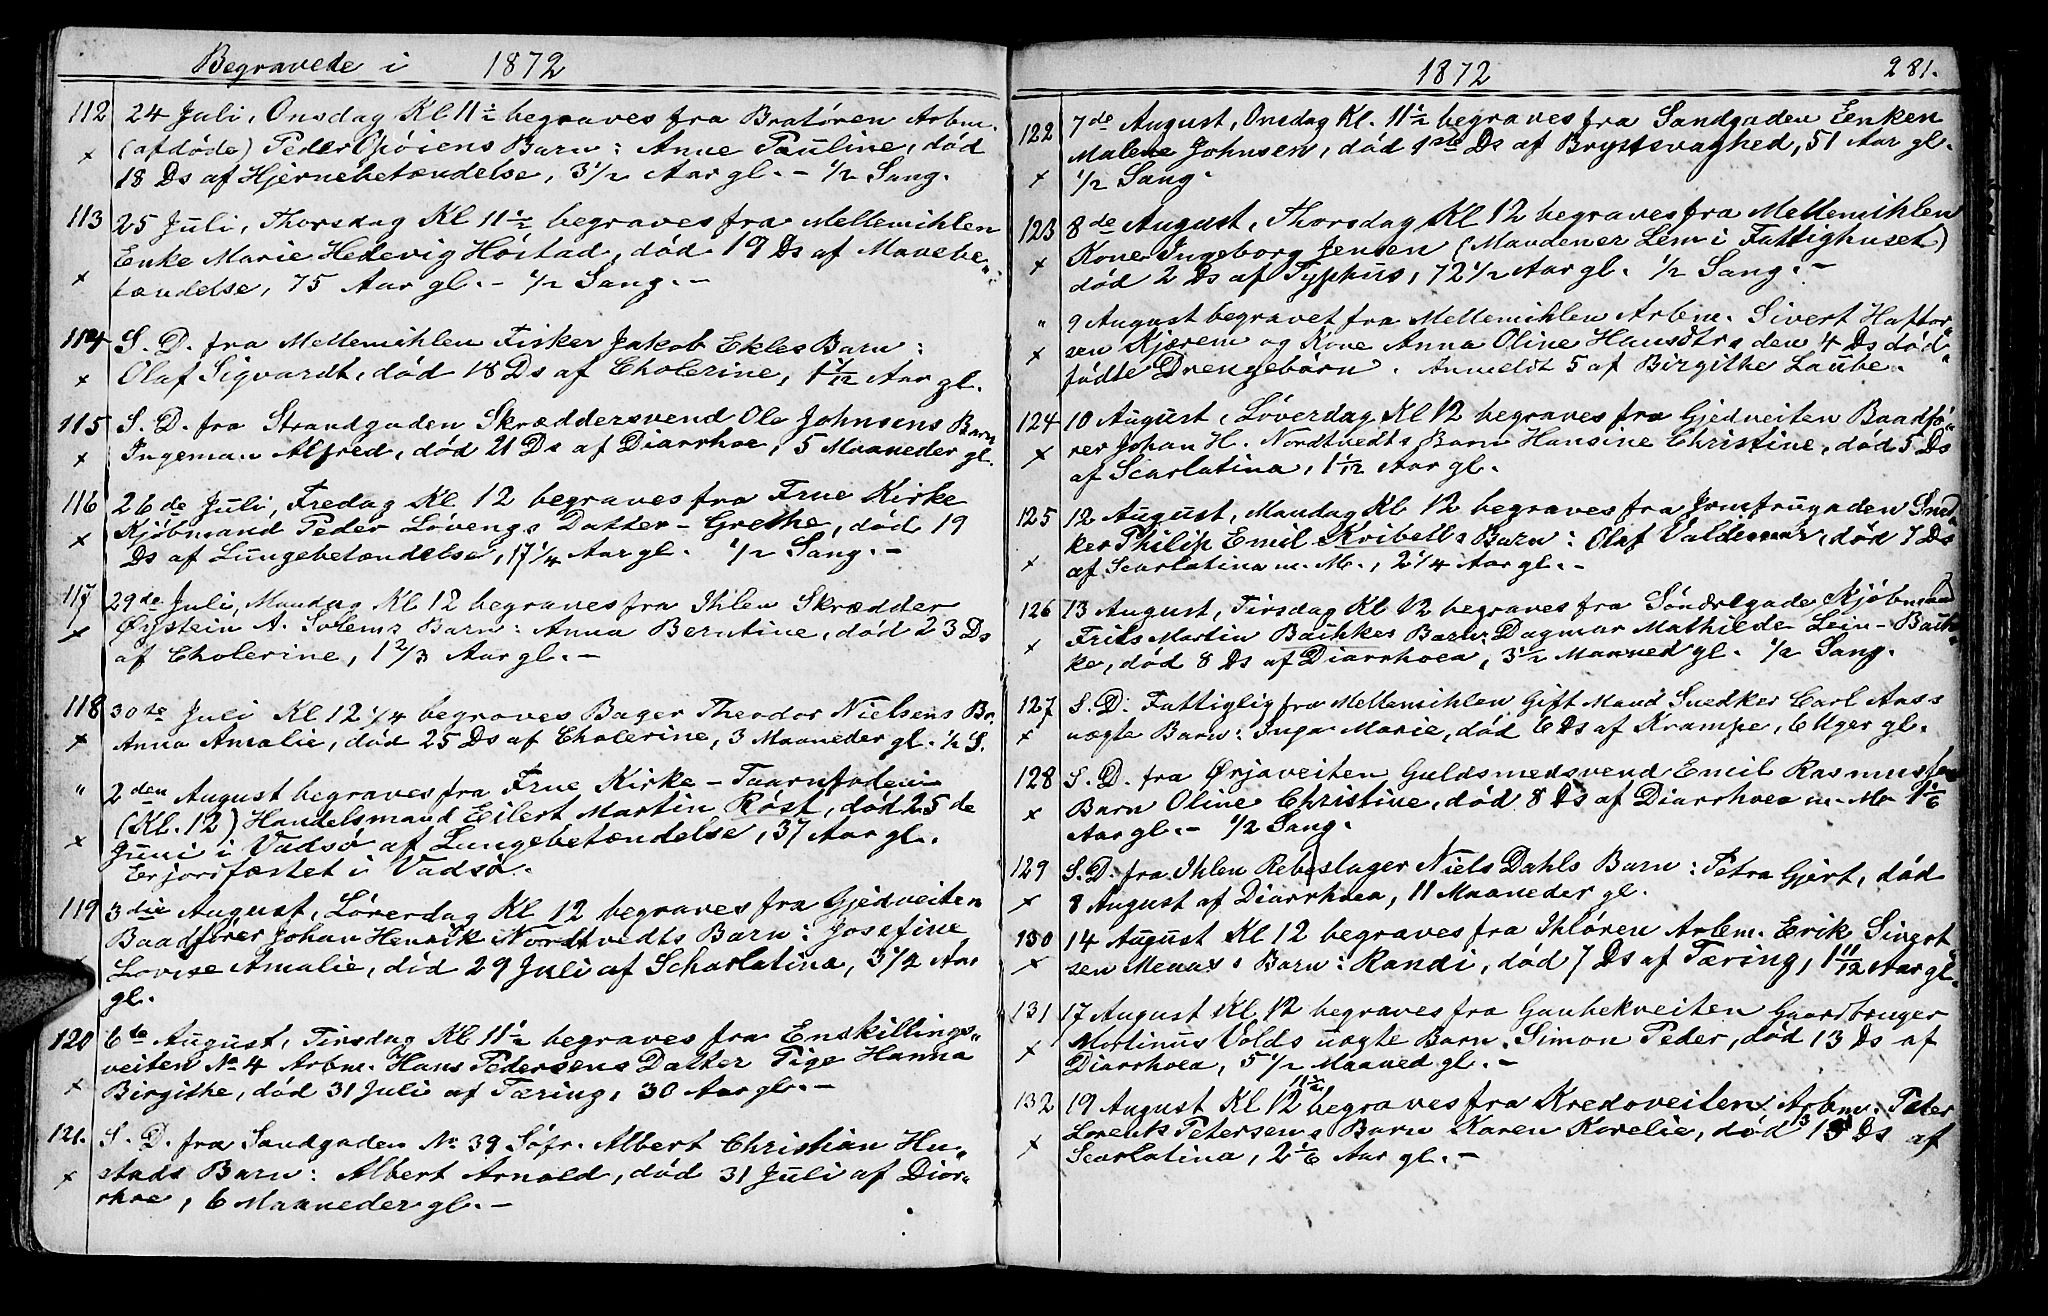 Begravede i 1872
112 24 Juli, Onsdag Kl 11½ begraves fra Bratøren Arbm.
x (afdøde) Peder Spøiens Barn: Anne Pauline, død
18 Ds af Hjernebetændelse, 3½ Aar gl. – ½ Sang.
113 25 Juli, Thorsdag Kl 11½ begraves fra Mellemihlen
Enke Marie Hedevig Höstad, død 19 Ds af Mavebe„
x tændelse, 75 Aar gl. – ½ Sang. –
114 S. D. fra Mellemihlen Fisker Jakob Ekles Barn:
x Olaf Sigvardt, død 18 Ds af Cholerine, 1 1/12 Aar gl.
115 S. D. fra Strandgaden Skræddersvend Ole Johnsens Barn
x Ingeman Alfred, død 21 Ds af Diarrhoe, 5 Maaneder gl.
116 26de Juli, Fredag Kl 12 begraves fra Frue Kirke
x Kjøbmand Peder Lövengs Datter – Grethe, død 19
Ds af Lungebetændelse, 17¼ Aar gl. ½ Sang. –
117 29de Juli, Mandag Kl 12 begraves fra Ihlen Skrædder
x Øystein A. Solems Barn: Anna Berntine, død 23 Ds
af Cholerine, 1⅔ Aar gl. –
118 30te Juli Kl 12¼ begraves Bager Theodor Nielsens Br.
x Anna Amalie, død 25 Ds af Cholerine, 3 Maaneder gl. ½ S.
" 2den August begraves fra Frue Kirke – Taarnfoden
(Kl. 12) Handelsmand Eilert Martin Rost, død 25de
x Juni i Vadsø af Lungebetændelse, 37 Aar gl.
Er jordfæstet i Vadsø.
119 3die August, Löverdag Kl 12 begraves fra Gjedveiten
Baadfører Johan Henrik Nordtvedts Barn: Josefine
x Lovise Amalie, död 29 Juli af Scharlatina, 3¼ Aar
gl.
120 6te August, Tirsdag Kl 11½ begraves fra Enskillings„
veiten No 4 Arbm. Hans Pedersens Datter Pige Hanna
x Birgithe, død 31 Juli af Tæring, 30 Aar gl. –
121. S. D. fra Sandgaden No 39 Söfr. Albert Christian Hu„
x stads Barn: Albert Arnold, død 31 Juli af Diar„
rhoe, 6 Maaneder gl. –
1872 281.
122 7de August, Onsdag Kl. 11½ begraves fra Sandgaden Enken
Malene Johnsen, død 1ste Ds af Brystsvaghed, 51 Aar gl.
x ½ Sang.
123 8de August, Thorsdag Kl 12 begraves fra Mellemihlen
x Kone Ingeborg Jensen (Manden er Lem i Fattighuset)
død 2 Ds af Typhus, 72½ Aar gl. ½ Sang. –
" 9 August begravet fra Mellemihlen Arbm. Sivert Haftor„
x sen Kjærem og Kone Anna Oline Hansdtrs den 4 Ds død„
fødte Drengebarn. Anmeldt 5 af Birgithe Laube.
124 10 August, Löverdag Kl 12 begraves fra Gjedveiten Baadfø„
x rer Johan H. Nordtvedts Barn Hansine Christine, død 5 Ds
af Scarlatina, 1 1/12 Aar gl.
125 12 August, Mandag Kl 12 begraves fra Jomfrugaden Sned„
ker Philip Emil Kribells Barn: Olaf Valdemar, død 7 Ds
x af Scarlatina m. M., 2¼ Aar gl. –
126 13 August, Tirsdag Kl 12 begraves fra Söndregade Kjöbmand
x Frits Martin Baihkes Barn: Dagmar Mathilde Lein – Baih„
ke, død 8 Ds af Diarrhoea, 3½ Maaned gl. ½ Sang.
127 S. D. Fattiglig fra Mellemihlen Gift Mand Snedker Carl Aass
x uægte Barn: Inga Marie, død 6 Ds af Krampe, 6 Uger gl.
128 S. D. fra Ørjaveiten Guldsmedsvend Emil Rasmussens
x Barn Oline Christine, død 8 Ds af Diarrhoea m. M. 1⅙
Aar gl. – ½ Sang.
129 S. D. fra Ihlen Rebslager Niels Dahls Barn: Petra Gjert, død
x 8 August af Diarrhoea, 11 Maaneder gl.
130 14 August Kl 12 begraves fra Ihløren Arbm. Erik Sivert
x sen Menaas Barn: Randi, død 7 Ds af Tæring, 1 11/12 Aar gl.
131 17 August Kl 12 begraves fra Gaubekveiten Gaardbruger
x Martinus Volds uægte Barn Simon Peder, død 13 Ds af
Diarrhoea, 5½ Maaned gl. –
11½
132 19 August Kl 12 begraves fra Kredoveiten Arbm. Peter
x Lorents Petersens Barn Karen Korelie, død 15 Ds af
Scarlatina, 2⅙ Aar gl. –